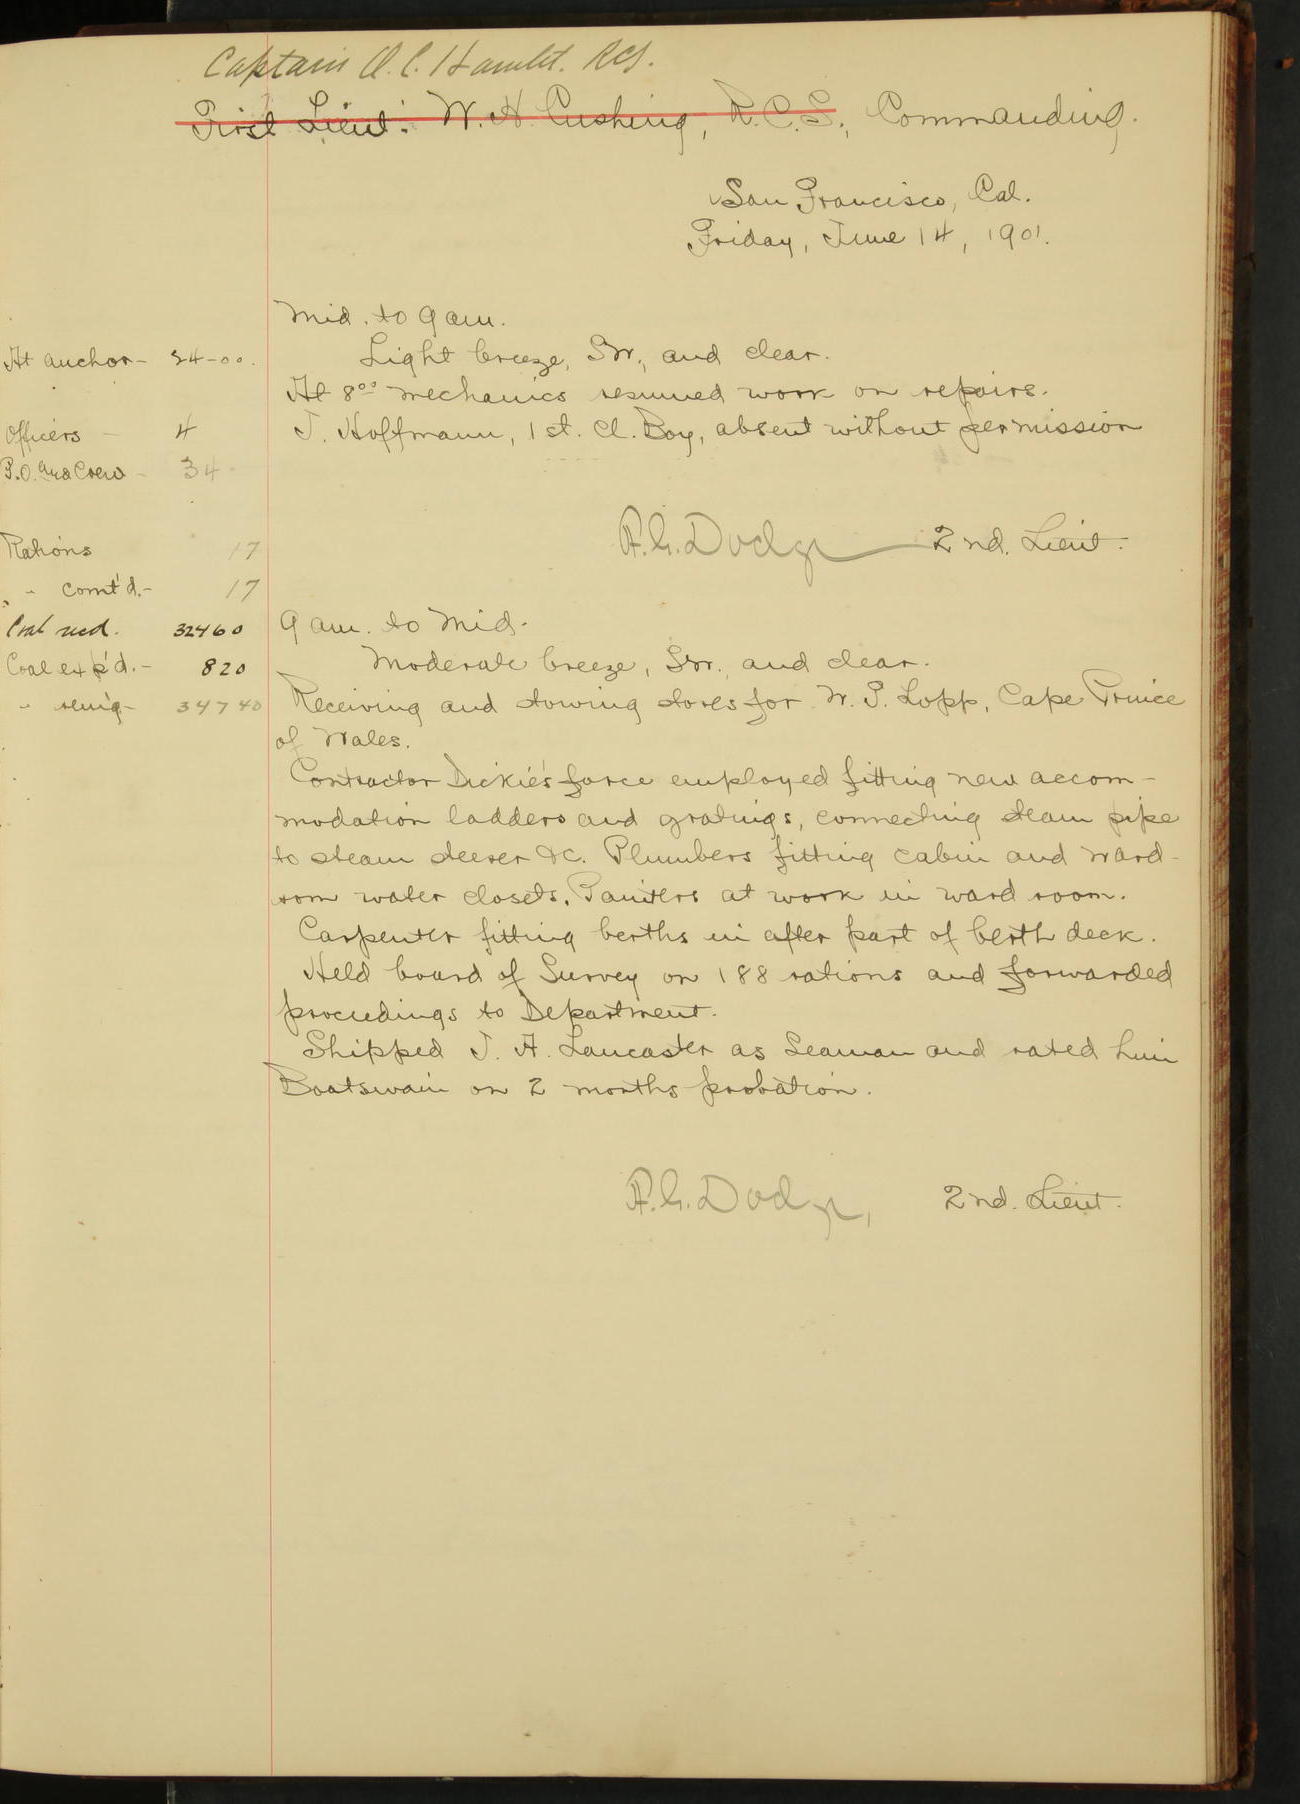 Captain O. C. Hamlet. RCS.
First Lieut. W. H. Cushing, R.C.S., Commanding.
San Francisco, Cal.
Friday, June 14, 1901.
Mid. to 9 am.
At anchor - 24-00.
Light breeze, SW., and clear.
At 8⁰⁰ mechanics resumed work on repairs.
Officers - 4
J. Hoffmann, 1st. Cl. Boy, absent without permission
P.O. and Crew - 34
F.G. Dodge 2nd. Lieut.
Rations 17
" " comt'd. - 17
9 am. to Mid.
Coal recd. 32460
Moderate breeze, SW., and clear.
Coal exp'd. - 820
Receiving and stowing stores for W. P. Lopp, Cape Prince
" remg - 34740
of Wales.
Contractor Dickie's force employed fitting new accom-
modation ladders and gratings, connecting steam pipe
to steam steerer &c. Plumbers fitting cabin and ward-
room water closets. Painters at work in ward room.
Carpenter fitting berths in after part of berth deck.
Held board of Survey on 188 rations and forwarded
proceedings to Department.
Shipped J. A. Lancaster as Seaman and rated him
Boatswain on 2 months probation.
F.G. Dodge, 2nd. Lieut.